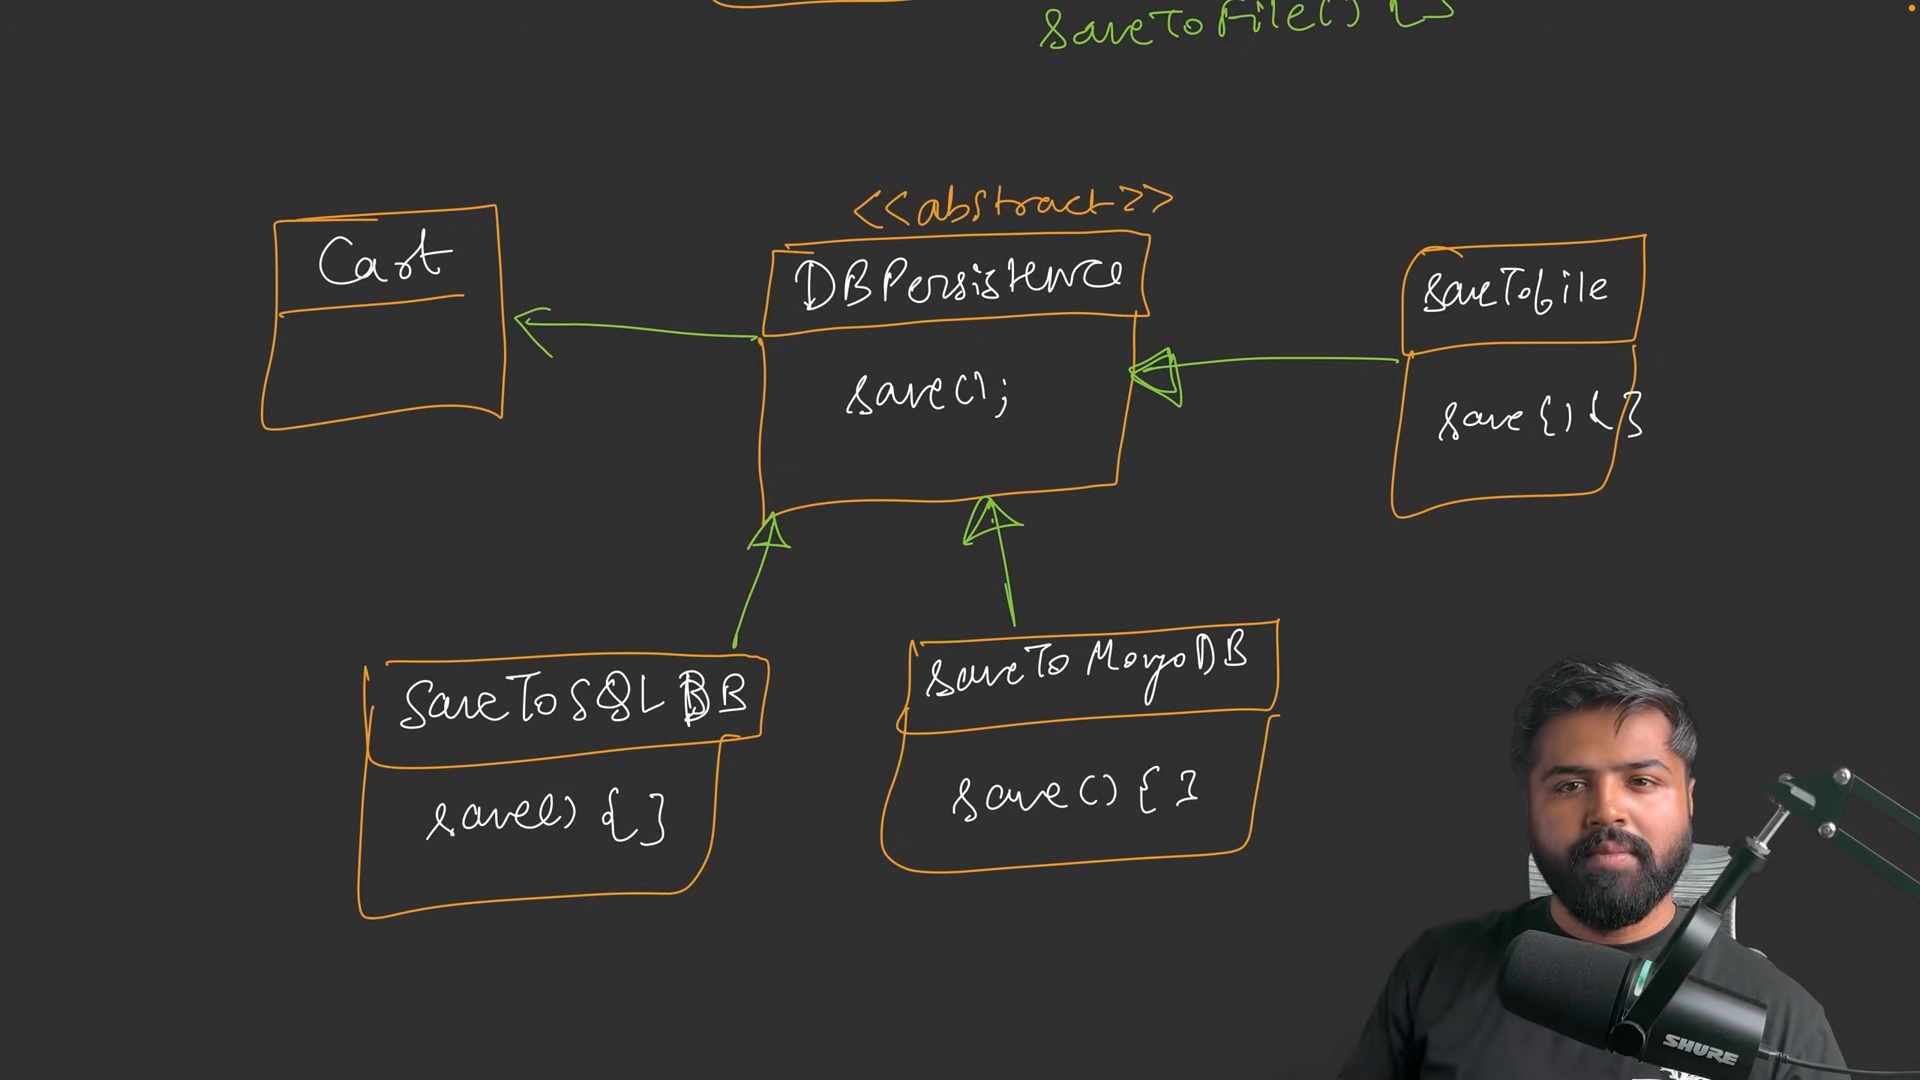 saveToFile() {}
<<abstract>>
Cart
DBPersistence
save();
saveTofile
save() {}
SaveToSQLDB
save() {}
saveToMongoDB
save() {}
SHURE